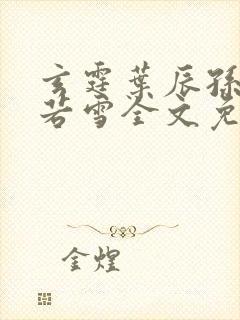 玄霆葉辰孫
若雪全文免
金煌